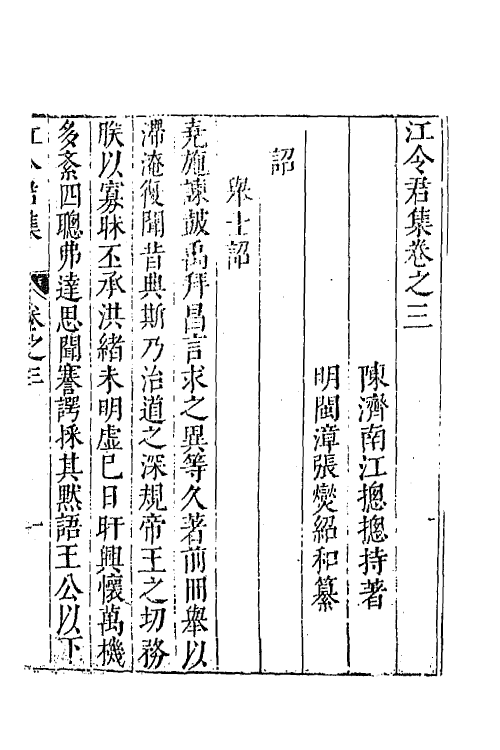 江令君集卷之三
陳濟南江摠摠持著
明閩漳張燮紹和纂
詔
舉士詔
堯施諫鼓禹拜昌言求之異等久著前冊舉以
滯淹復聞昔典斯乃治道之深規帝王之切務
朕以寡昧丕承洪緒未明虛已日旰興懷萬機
多紊四聰弗達思聞謇諤採其黙語王公以下
江令君集
卷之三
一